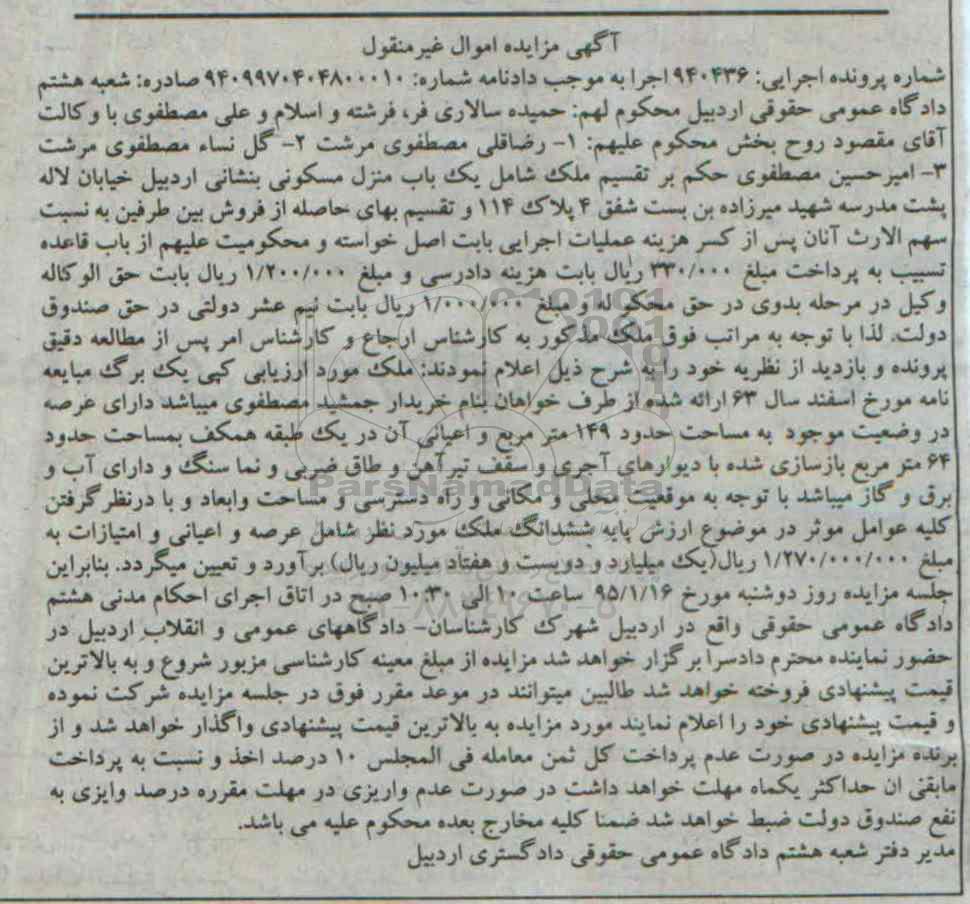 آگهی مزایده اموال غیرمنقول
شماره پرونده اجرایی: ۹۴۰۴۳۶ اجرا به موجب دادنامه شماره: ۹۴۰۹۹۷۰۴۰۴۸۰۰۰۱۰ صادره: شعبه هشتم
دادگاه عمومی حقوقی اردبیل محکوم لهم: حمیده سالاری فر، فرشته و اسلام و علی مصطفوی با وکالت
آقای مقصود روح بخش محکوم علیهم: ۱- رضاقلی مصطفوی مرشت ۲- گل نساء مصطفوی مرشت
۳- امیرحسین مصطفوی حکم بر تقسیم ملک شامل یک باب منزل مسکونی بنشانی اردبیل خیابان لاله
پشت مدرسه شهید میرزاده بن بست شفق ۴ پلاک ۱۱۴ و تقسیم بهای حاصله از فروش بین طرفین به نسبت
سهم الارث آنان پس از کسر هزینه عملیات اجرایی بابت اصل خواسته و محکومیت علیهم از باب قاعده
تسبیب به پرداخت مبلغ ۳۳۰/۰۰۰ ریال بابت هزینه دادرسی و مبلغ ۱/۲۰۰/۰۰۰ ریال بابت حق الوکاله
وکیل در مرحله بدوی در حق محکم له و مبلغ ۱/۰۰۰/۰۰۰ ریال بابت نیم عشر دولتی در حق صندوق
دولت. لذا با توجه به مراتب فوق ملک مذکور به کارشناس ارجاع و کارشناس امر پس از مطالعه دقیق
پرونده و بازدید از نظریه خود را به شرح ذیل اعلام نمودند: ملک مورد ارزیابی کپی یک برگ مبایعه
نامه مورخ اسفند سال ۶۳ ارائه شده از طرف خواهان بنام خریدار جمشید مصطفوی میباشد دارای عرصه
در وضعیت موجود به مساحت حدود ۱۴۹ متر مربع و اعیانی آن در یک طبقه همکف بمساحت حدود
۶۴ متر مربع بازسازی شده با دیوارهای آجری و سقف تیرآهن و طاق ضربی و نما سنگ و دارای آب و
برق و گاز میباشد با توجه به موقعیت محلی و مکانی و راه دسترسی و مساحت وابعاد و با درنظر گرفتن
کلیه عوامل موثر در موضوع ارزش پایه ششدانگ ملک مورد نظر شامل عرصه و اعیانی و امتیازات به
مبلغ ۱/۲۷۰/۰۰۰/۰۰۰ ریال(یک میلیارد و دویست و هفتاد میلیون ریال) برآورد و تعیین میگردد. بنابراین
جلسه مزایده روز دوشنبه مورخ ۹۵/۱/۱۶ ساعت ۱۰ الی ۱۰:۳۰ صبح در اتاق اجرای احکام مدنی هشتم
دادگاه عمومی حقوقی واقع در اردبیل شهرک کارشناسان- دادگاههای عمومی و انقلاب اردبیل در
حضور نماینده محترم دادسرا برگزار خواهد شد مزایده از مبلغ معینه کارشناسی مزبور شروع و به بالاترین
قیمت پیشنهادی فروخته خواهد شد طالبین میتوانند در موعد مقرر فوق در جلسه مزایده شرکت نموده
و قیمت پیشنهادی خود را اعلام نمایند مورد مزایده به بالاترین قیمت پیشنهادی واگذار خواهد شد و از
برنده مزایده در صورت عدم پرداخت کل ثمن معامله فی المجلس ۱۰ درصد اخذ و نسبت به پرداخت
مابقی ان حداکثر یکماه مهلت خواهد داشت در صورت عدم واریزی در مهلت مقرره درصد وایزی به
نفع صندوق دولت ضبط خواهد شد ضمنا کلیه مخارج بعده محکوم علیه می باشد.
مدیر دفتر شعبه هشتم دادگاه عمومی حقوقی دادگستری اردبیل
ParsNamadData